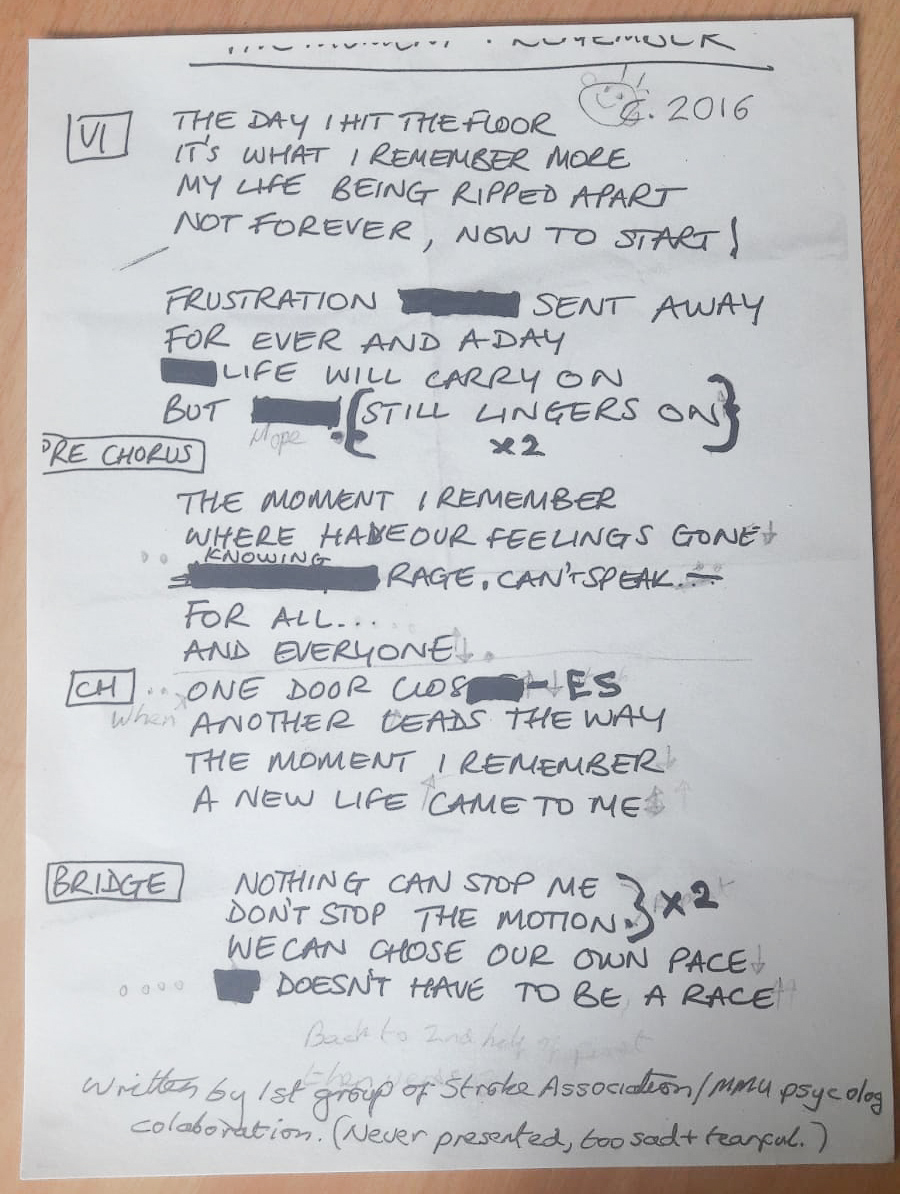 THE MOMENT I REMEMBER
© 2016
V1
THE DAY I HIT THE FLOOR
IT'S WHAT I REMEMBER MORE
MY LIFE BEING RIPPED APART
NOT FOREVER, NOW TO START!
FRUSTRATION SENT AWAY
FOR EVER AND A DAY
LIFE WILL CARRY ON
BUT (STILL LINGERS ON}
Hope
X2
PRE CHORUS
THE MOMENT I REMEMBER
WHERE HAVE OUR FEELINGS GONE
KNOWING
RAGE, CAN'T SPEAK
FOR ALL...
AND EVERYONE
CH .. ONE DOOR CLOS - ES
When ANOTHER LEADS THE WAY
THE MOMENT I REMEMBER
A NEW LIFE CAME TO ME
BRIDGE
NOTHING CAN STOP ME } X2
DON'T STOP THE MOTION.
WE CAN CHOSE OUR OWN PACE
.... DOESN'T HAVE TO BE A RACE
Back to 2nd half of
then verse
Written by 1st group of Stroke Association/MMU psycolog
colaboration. (Never presented, too sad + tearful.)